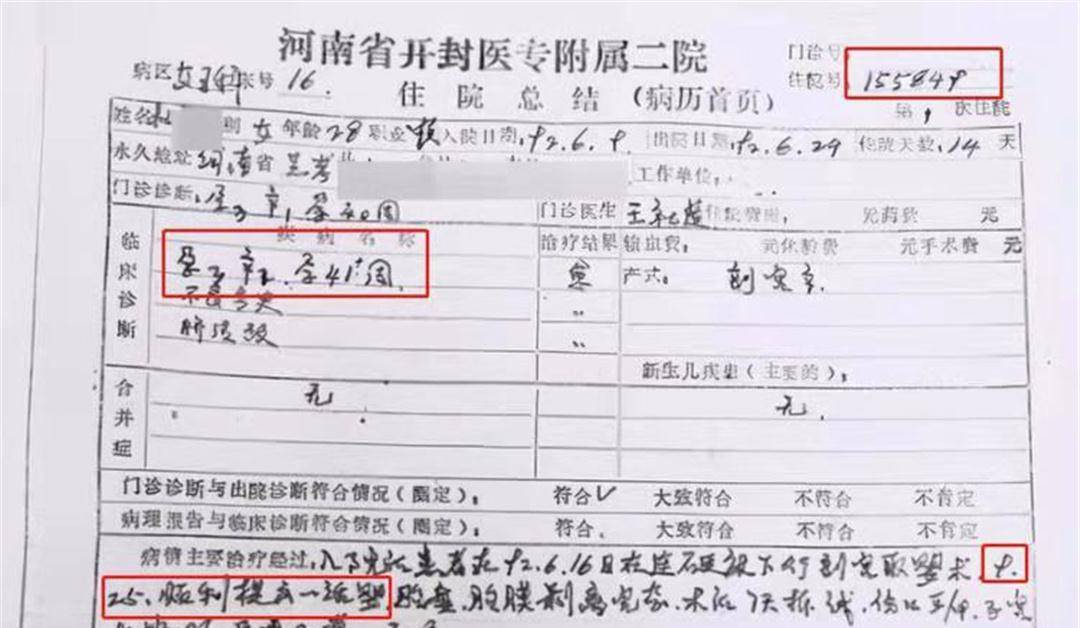 河南省开封医专附属二院
门诊号
病区 妇产科 床号 16. 住院号 155849
住院总结(病历首页) 第 1 次住院
姓名 别 女 年龄 28 职业 入院日期, 92.6.9. 出院日期, 92.6.29 住院天数, 14 天
永久地址 河南省 兰考 工作单位,
门诊诊断, 孕3产1孕40周 门诊医生 住院费用, 元药费 元
疾病名称 治疗结果 输血费, 元化验费 元手术费 元
临床诊断 孕3产2.孕41+周. 产式: 剖宫产.
不良产史 〃
〃
新生儿疾患(主要的),
合并症 无 无.
门诊诊断与出院诊断符合情况(圈定), 符合✓ 大致符合 不符合 不肯定
病理报告与临床诊断符合情况(圈定), 符合. 大致符合 不符合 不肯定
病情主要治疗经过, 患者在92.6.16日在连硬下行剖宫取婴术, 9.
25.顺利提出一活婴, 胎盘,胎膜剥离完整.术后7天拆线,